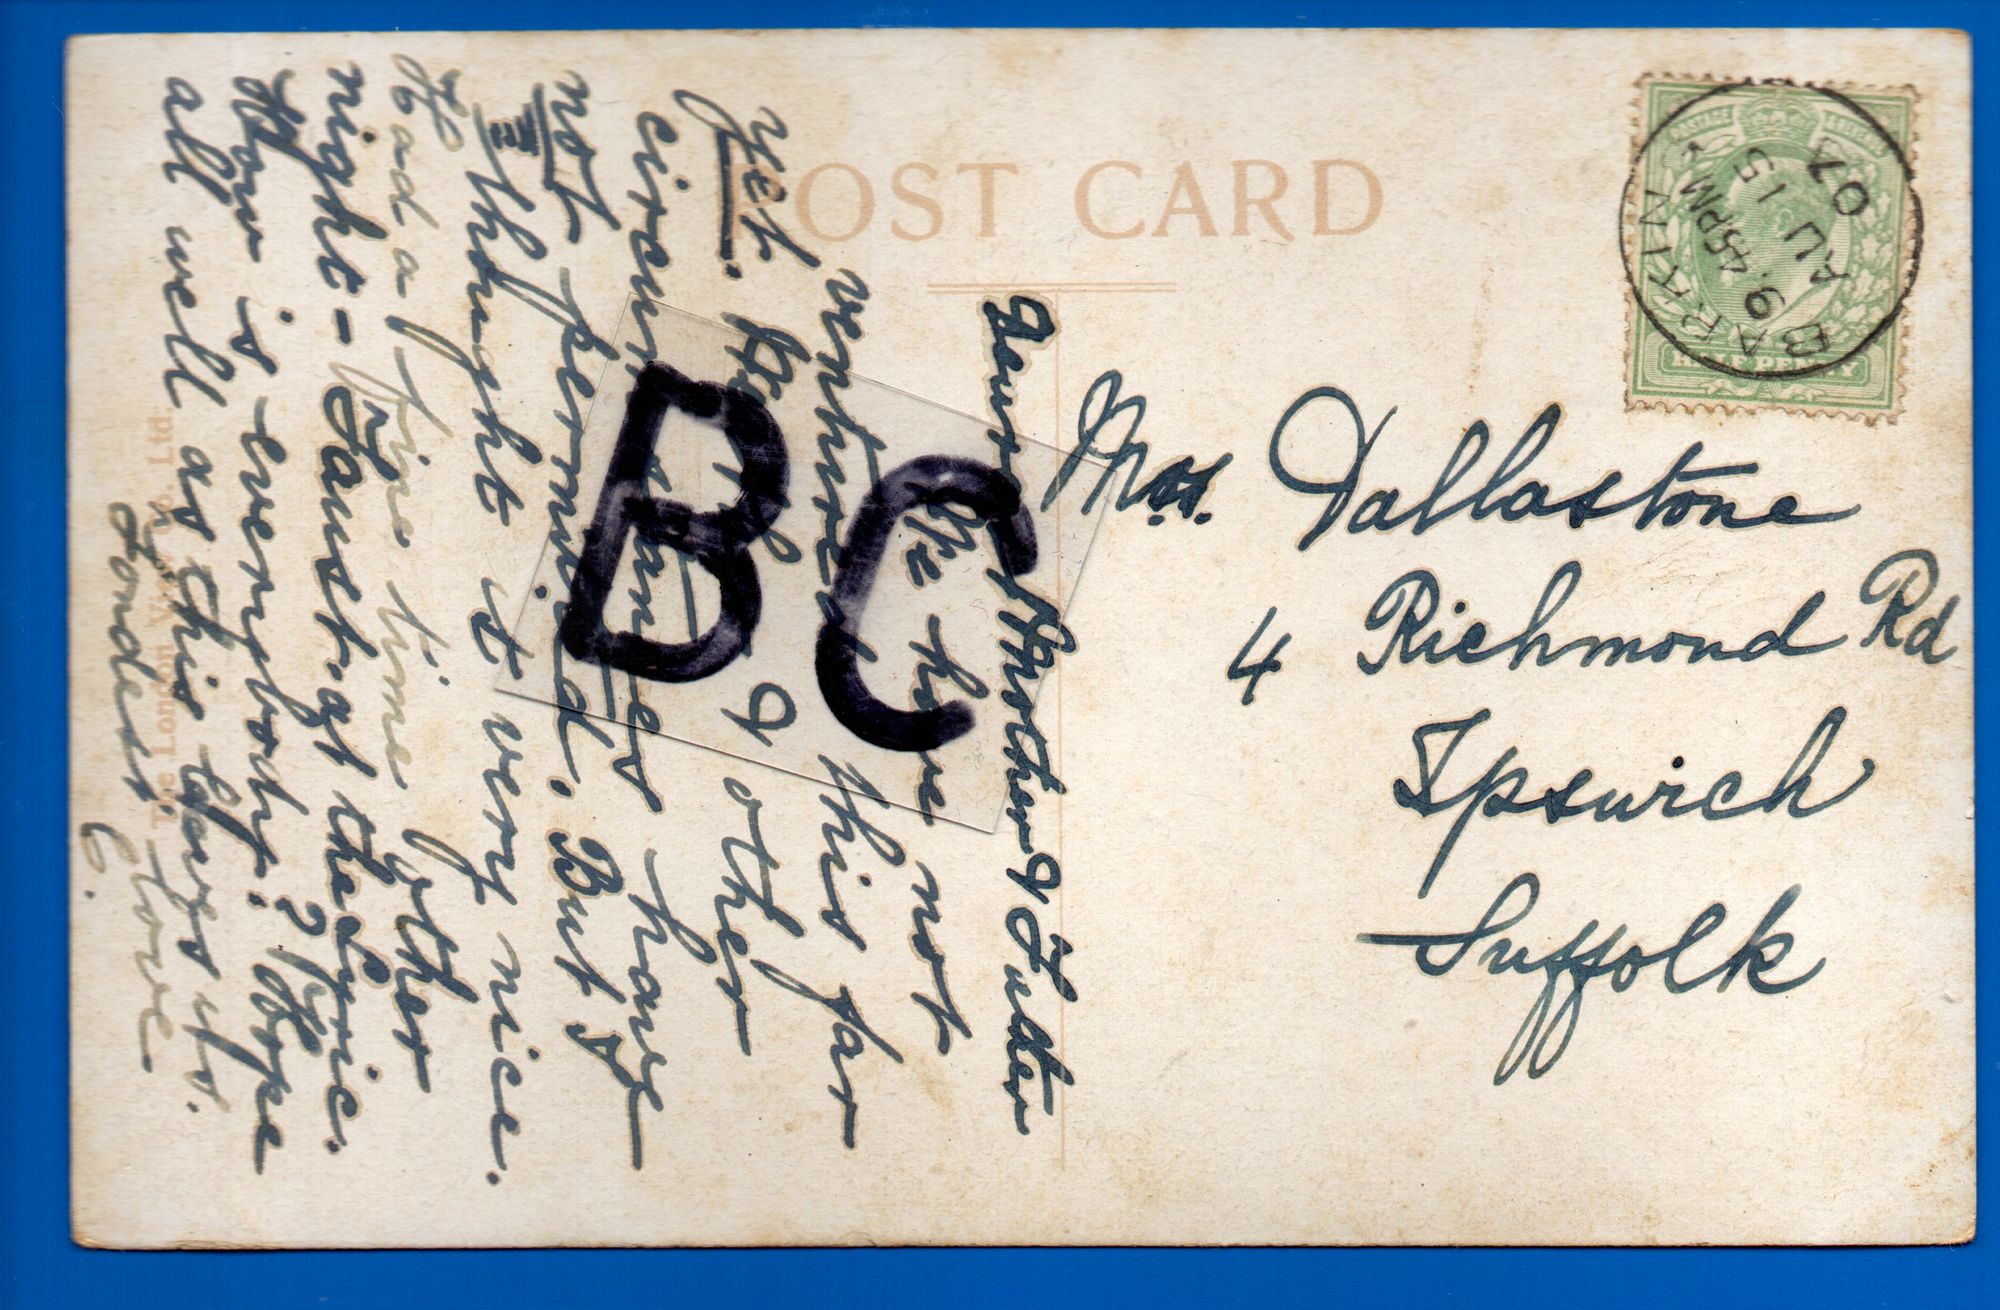 POST CARD
BARKING
9.45PM
AU 15
07
POSTAGE
HALF PENNY
Mrs. Dallastone
4 Richmond Rd
Ipswich
Suffolk
Mother &
We have not
ventured this far
yet. & other
circumstances have
not permitted. But I
thought it very nice.
Had a fine time other
night - Faust at the Lyric.
How is everybody? Hope
all well as this leaves us.
Fondest Love
The London View Co. Ltd.
BC